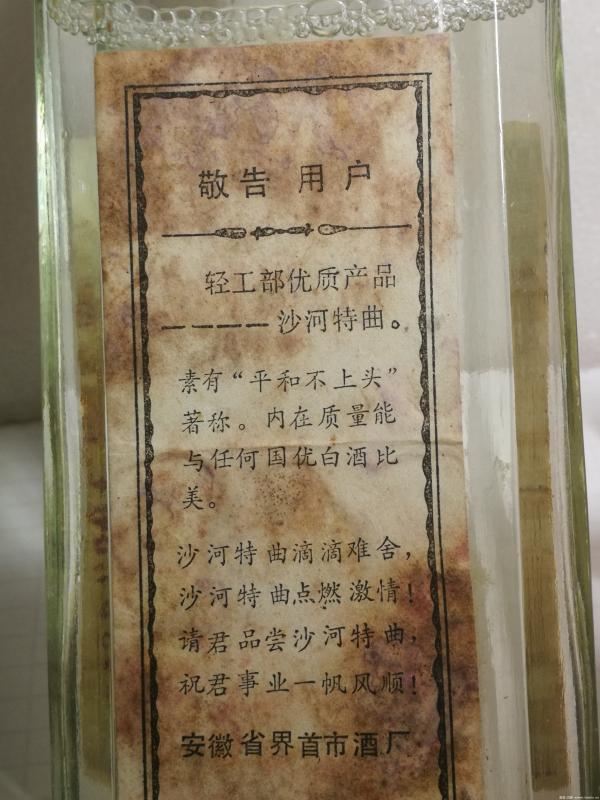 敬告 用户
轻工部优质产品
————沙河特曲。
素有“平和不上头”
著称。内在质量能
与任何国优白酒比
美。
沙河特曲滴滴难舍,
沙河特曲点燃激情!
请君品尝沙河特曲,
祝君事业一帆风顺!
安徽省界首市酒厂